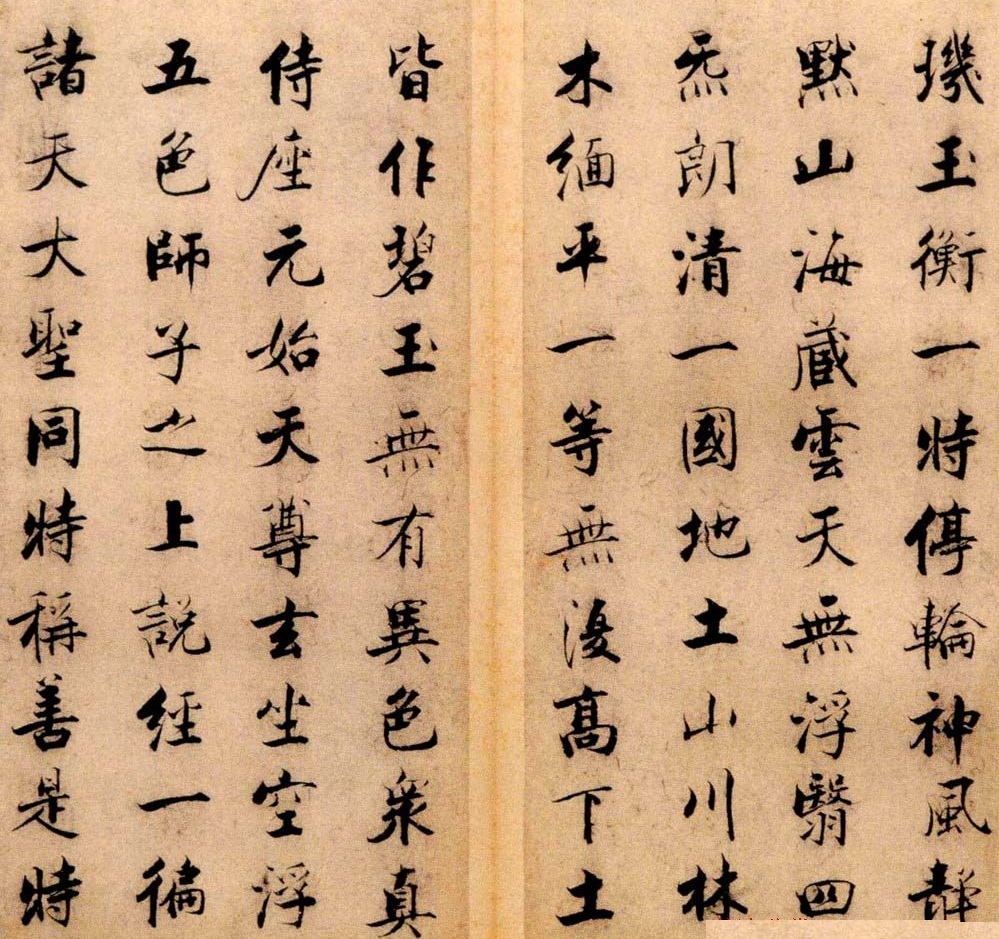 璣玉衡一時停輪神風靜
默山海藏雲天無浮翳四
炁朗清一國地土山川林
木緬平一等無復高下土
皆作碧玉無有異色眾真
侍座元始天尊玄坐空浮
五色師子之上說經一徧
諸天大聖同時稱善是時